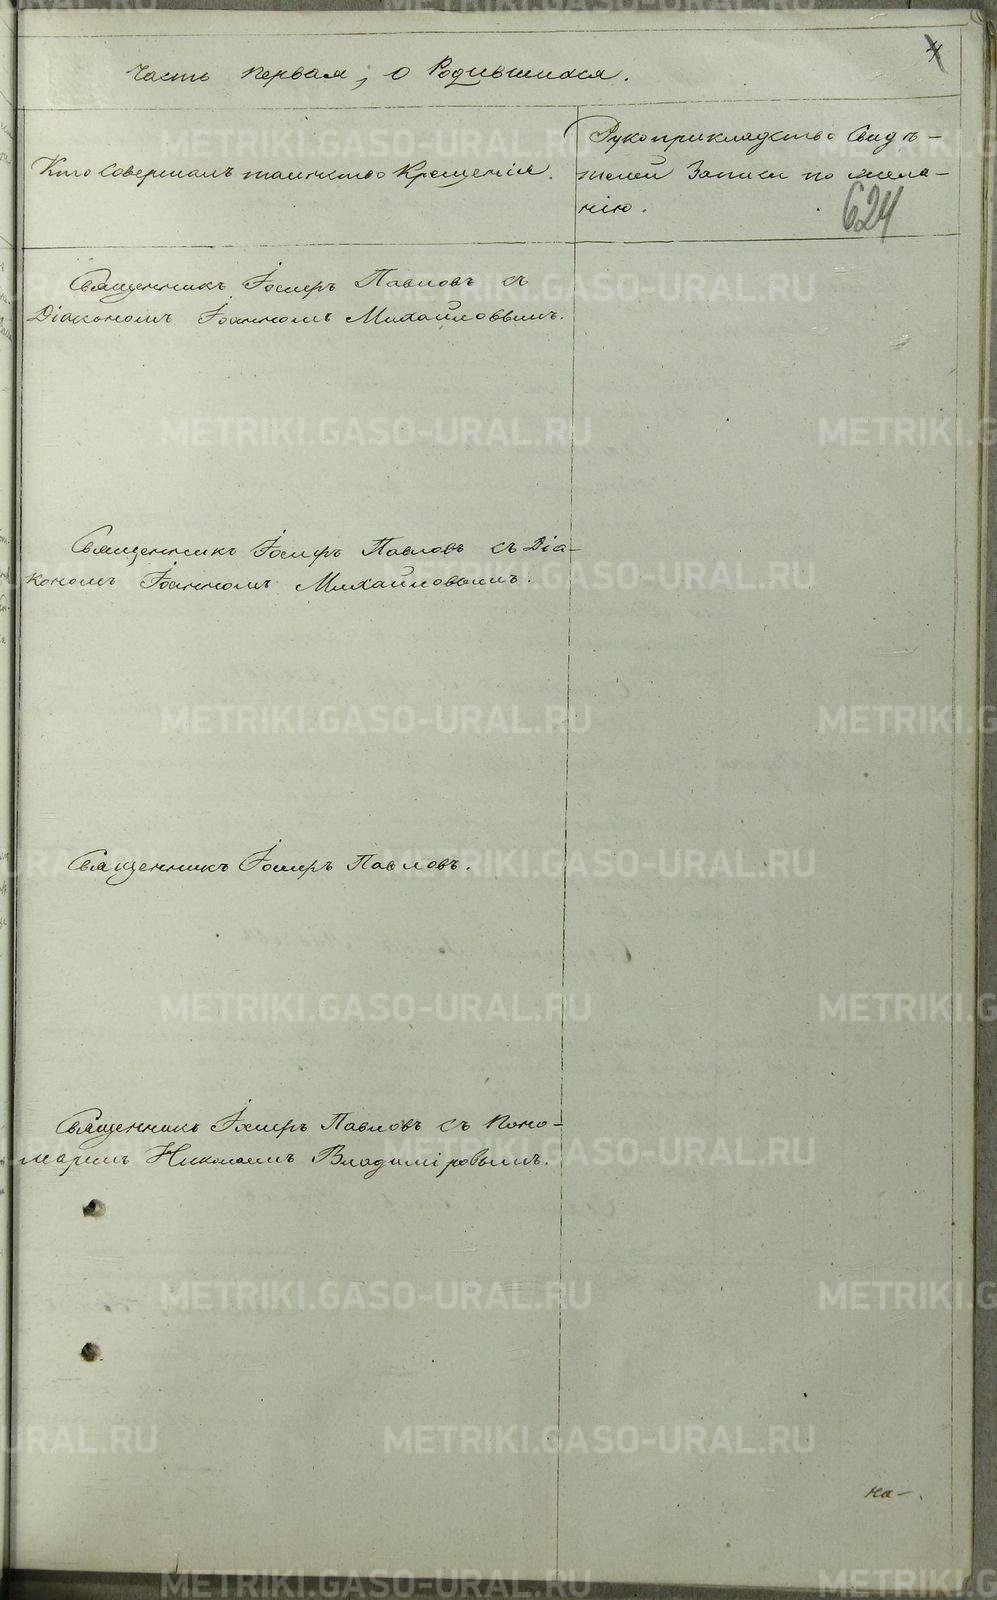 Часть первая, о Родившихся.
4
Кто совершалъ таинство Крещенія.
Рукоприкладство Свидѣ-
телей Записи по жела-
нію.
624
Священникъ Іосифъ Павловъ съ
Діакономъ Іоанномъ Михайловымъ.
Священникъ Іосифъ Павловъ съ Діа-
кономъ Іоанномъ Михайловымъ.
Священникъ Іосифъ Павловъ.
Священникъ Іосифъ Павловъ съ Поно-
маремъ Николаемъ Владиміровымъ.
на-
METRIKI.GASO-URAL.RU